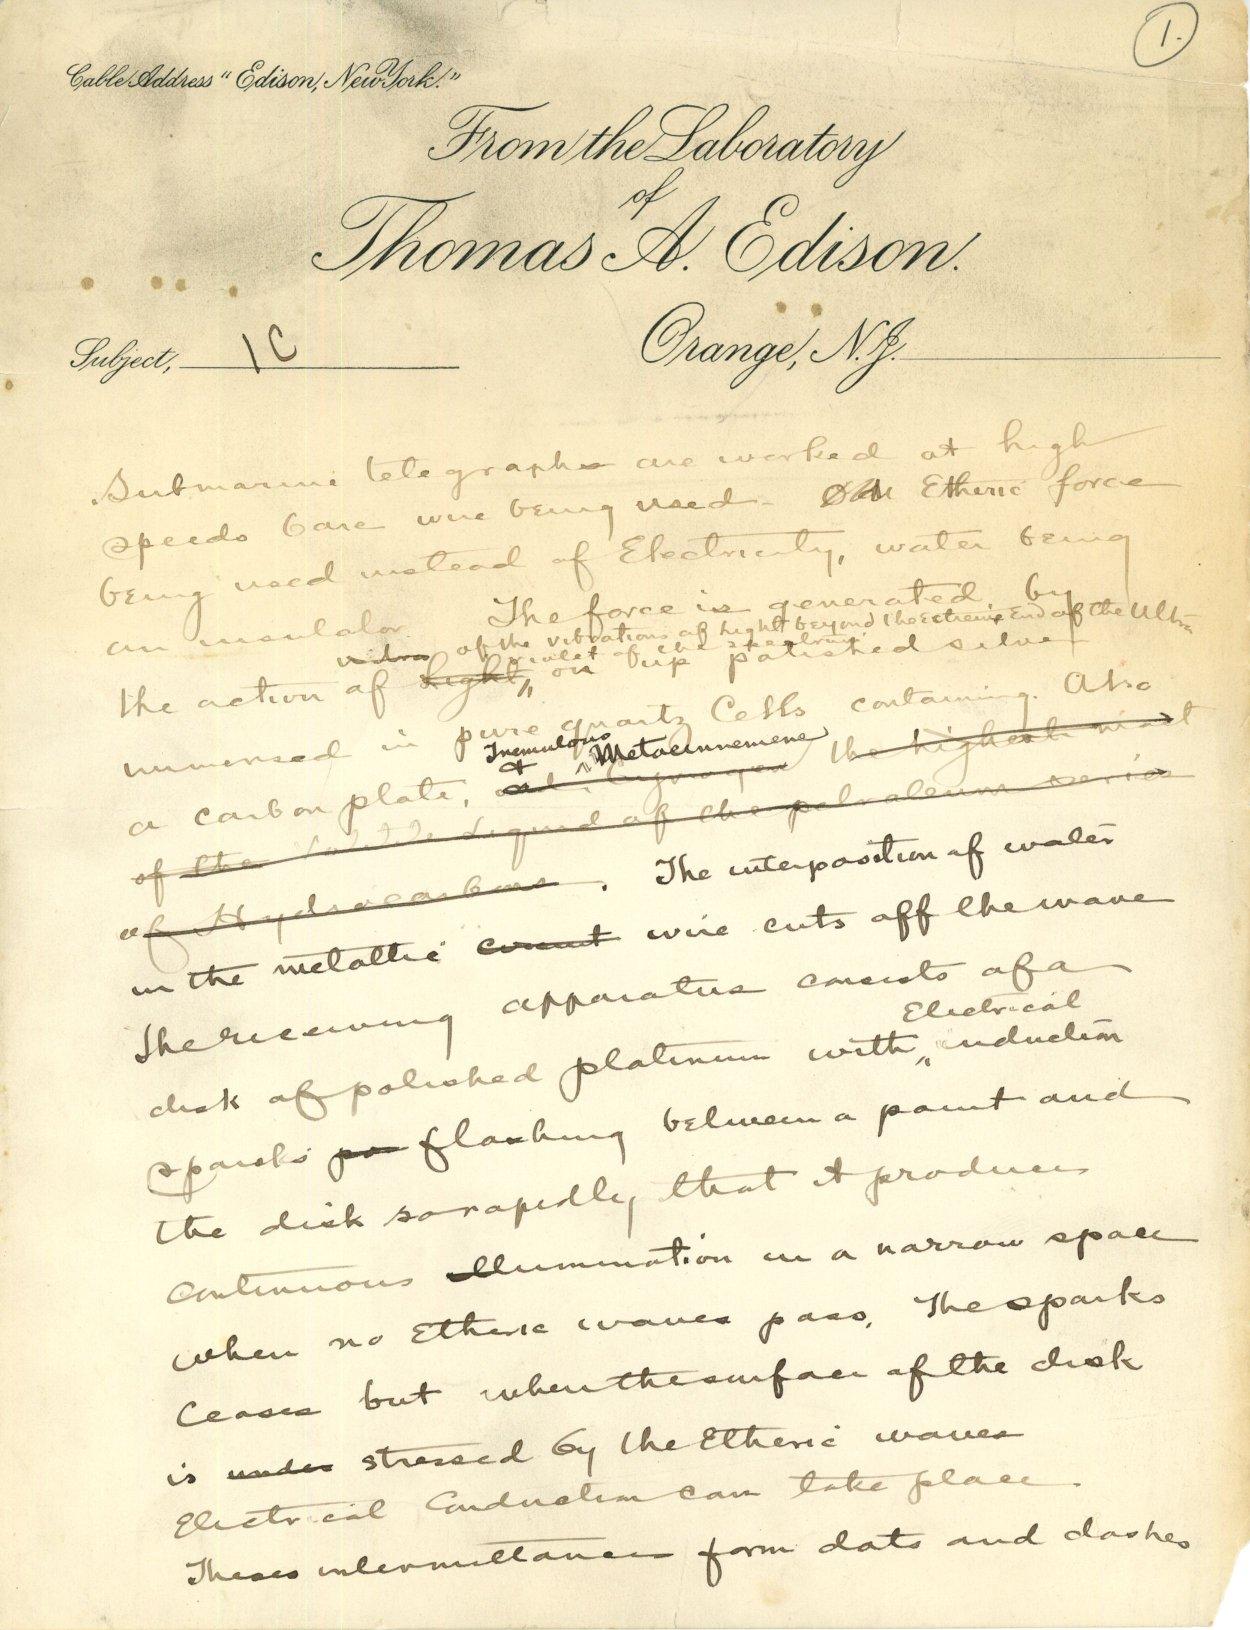 1.
Cable Address "Edison, New York."
From the Laboratory
of
Thomas A. Edison.
Orange, N.J.
Subject, 1C
Submarine telegraphs are worked at high
speeds bare wire being used - Etheric force
being used instead of Electricity, water being
an insulator The force is generated by
of the vibrations of light beyond the extreme End of the Ultra
violet of the spectrum
the action of light, on polished silver
immersed in pure quartz Cells containing. Also
Tremulous
& Metacinnemene
a carbon plate, the highest most
of the liquid of the petroleum series
of Hydrocarbons . The interposition of water
in the metallic wire cuts off the wave
The receiving apparatus consists of a
Electrical
disk of polished platinum with induction
sparks flashing between a point and
the disk so rapidly that it produces
Continuous illumination in a narrow space
when no Etheric waves pass, The sparks
Ceases but when the surface of the disk
is under stressed by the Etheric waves
Electrical Conduction can take place.
Theses intermittances form dots and dashes